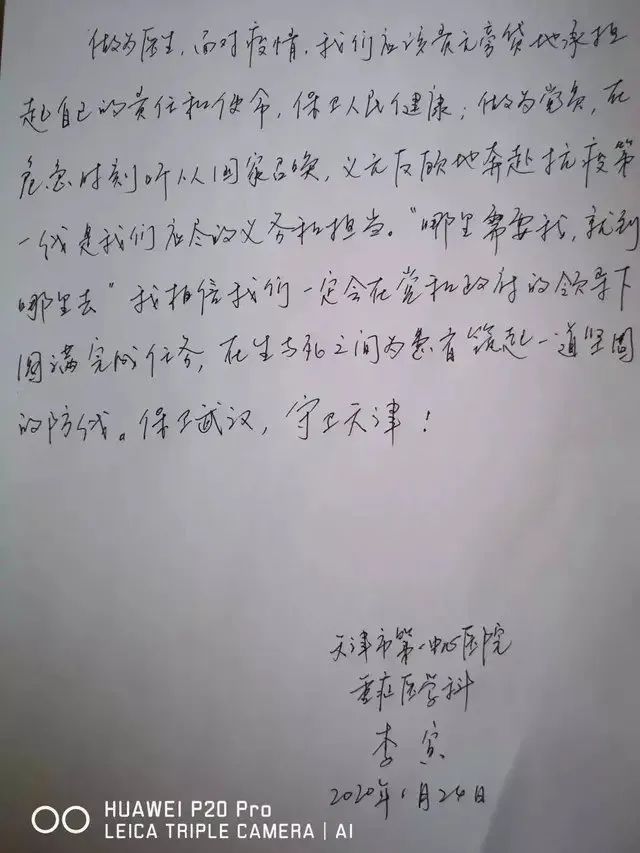 做为医生，面对疫情，我们应该责无旁贷地承担
起自己的责任和使命，保卫人民健康；做为党员，在
危急时刻听从国家召唤，义无反顾地奔赴抗疫第
一线是我们应尽的义务和担当。“哪里需要我，就到
哪里去”我相信我们一定会在党和政府的领导下
圆满完成任务，在生与死之间为患者筑起一道坚固
的防线。保卫武汉，守卫天津！
天津市第一中心医院
重症医学科
李寅
2020年1月24日
HUAWEI P20 Pro
LEICA TRIPLE CAMERA | AI